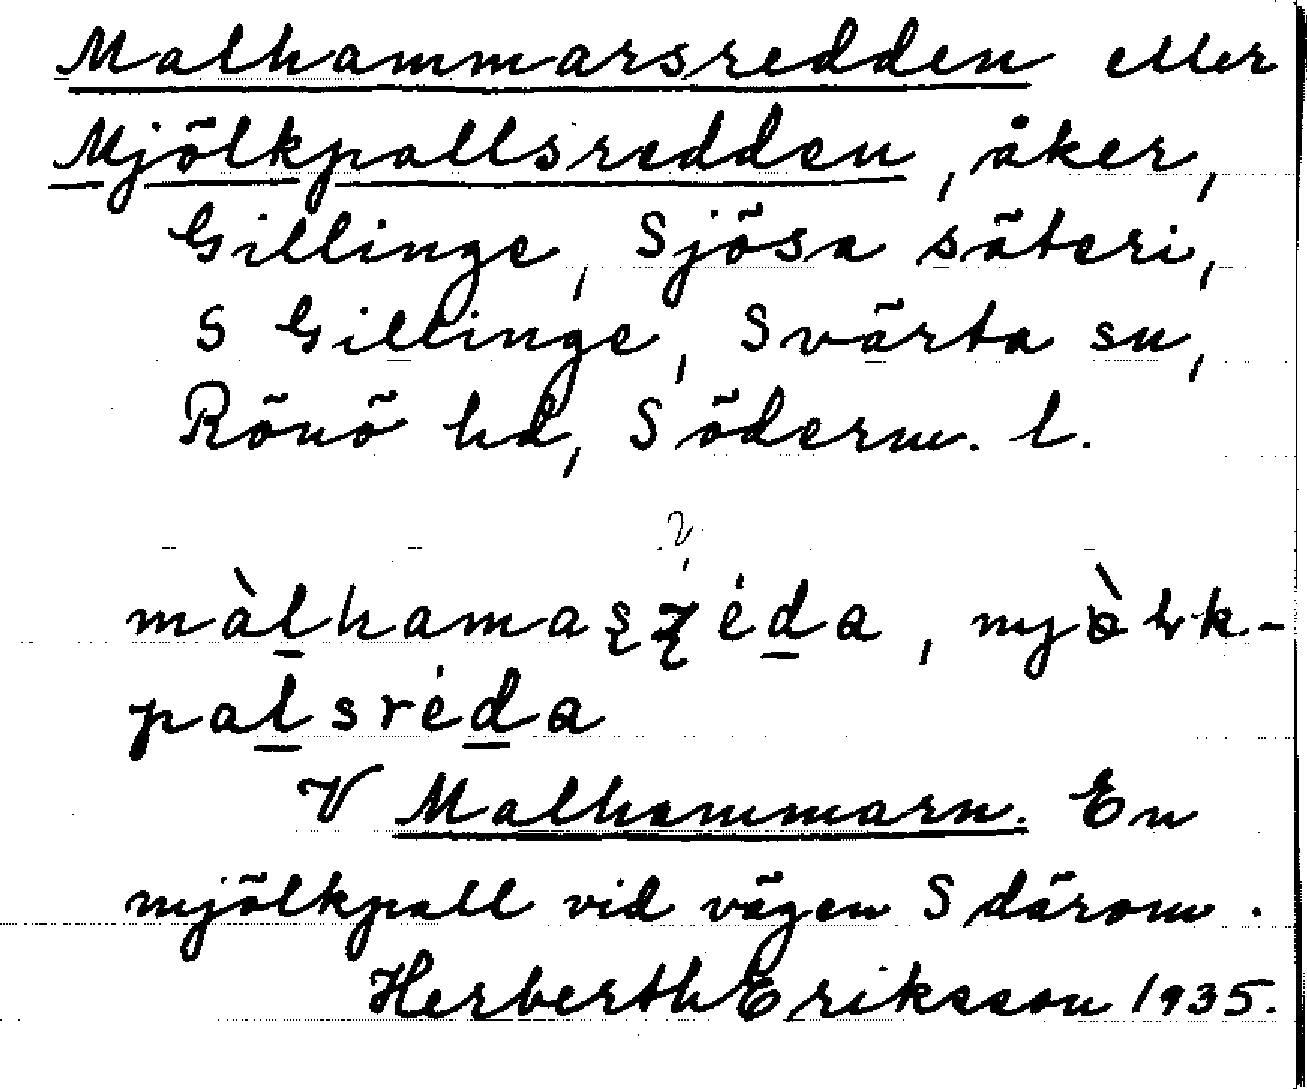 Malhammarsredden eller
Mjölkpallsredden, åker,
Gillinge, Sjösa säteri,
S Gillinge, Svärta sn,
Rönö hd, Söderm. l.
?
màl̠hamaʂʐėd̠a, mjòlk-
pal̠srėd̠a
V Malhammarn. En
mjölkpall vid vägen S därom.
Herberth Eriksson 1935.